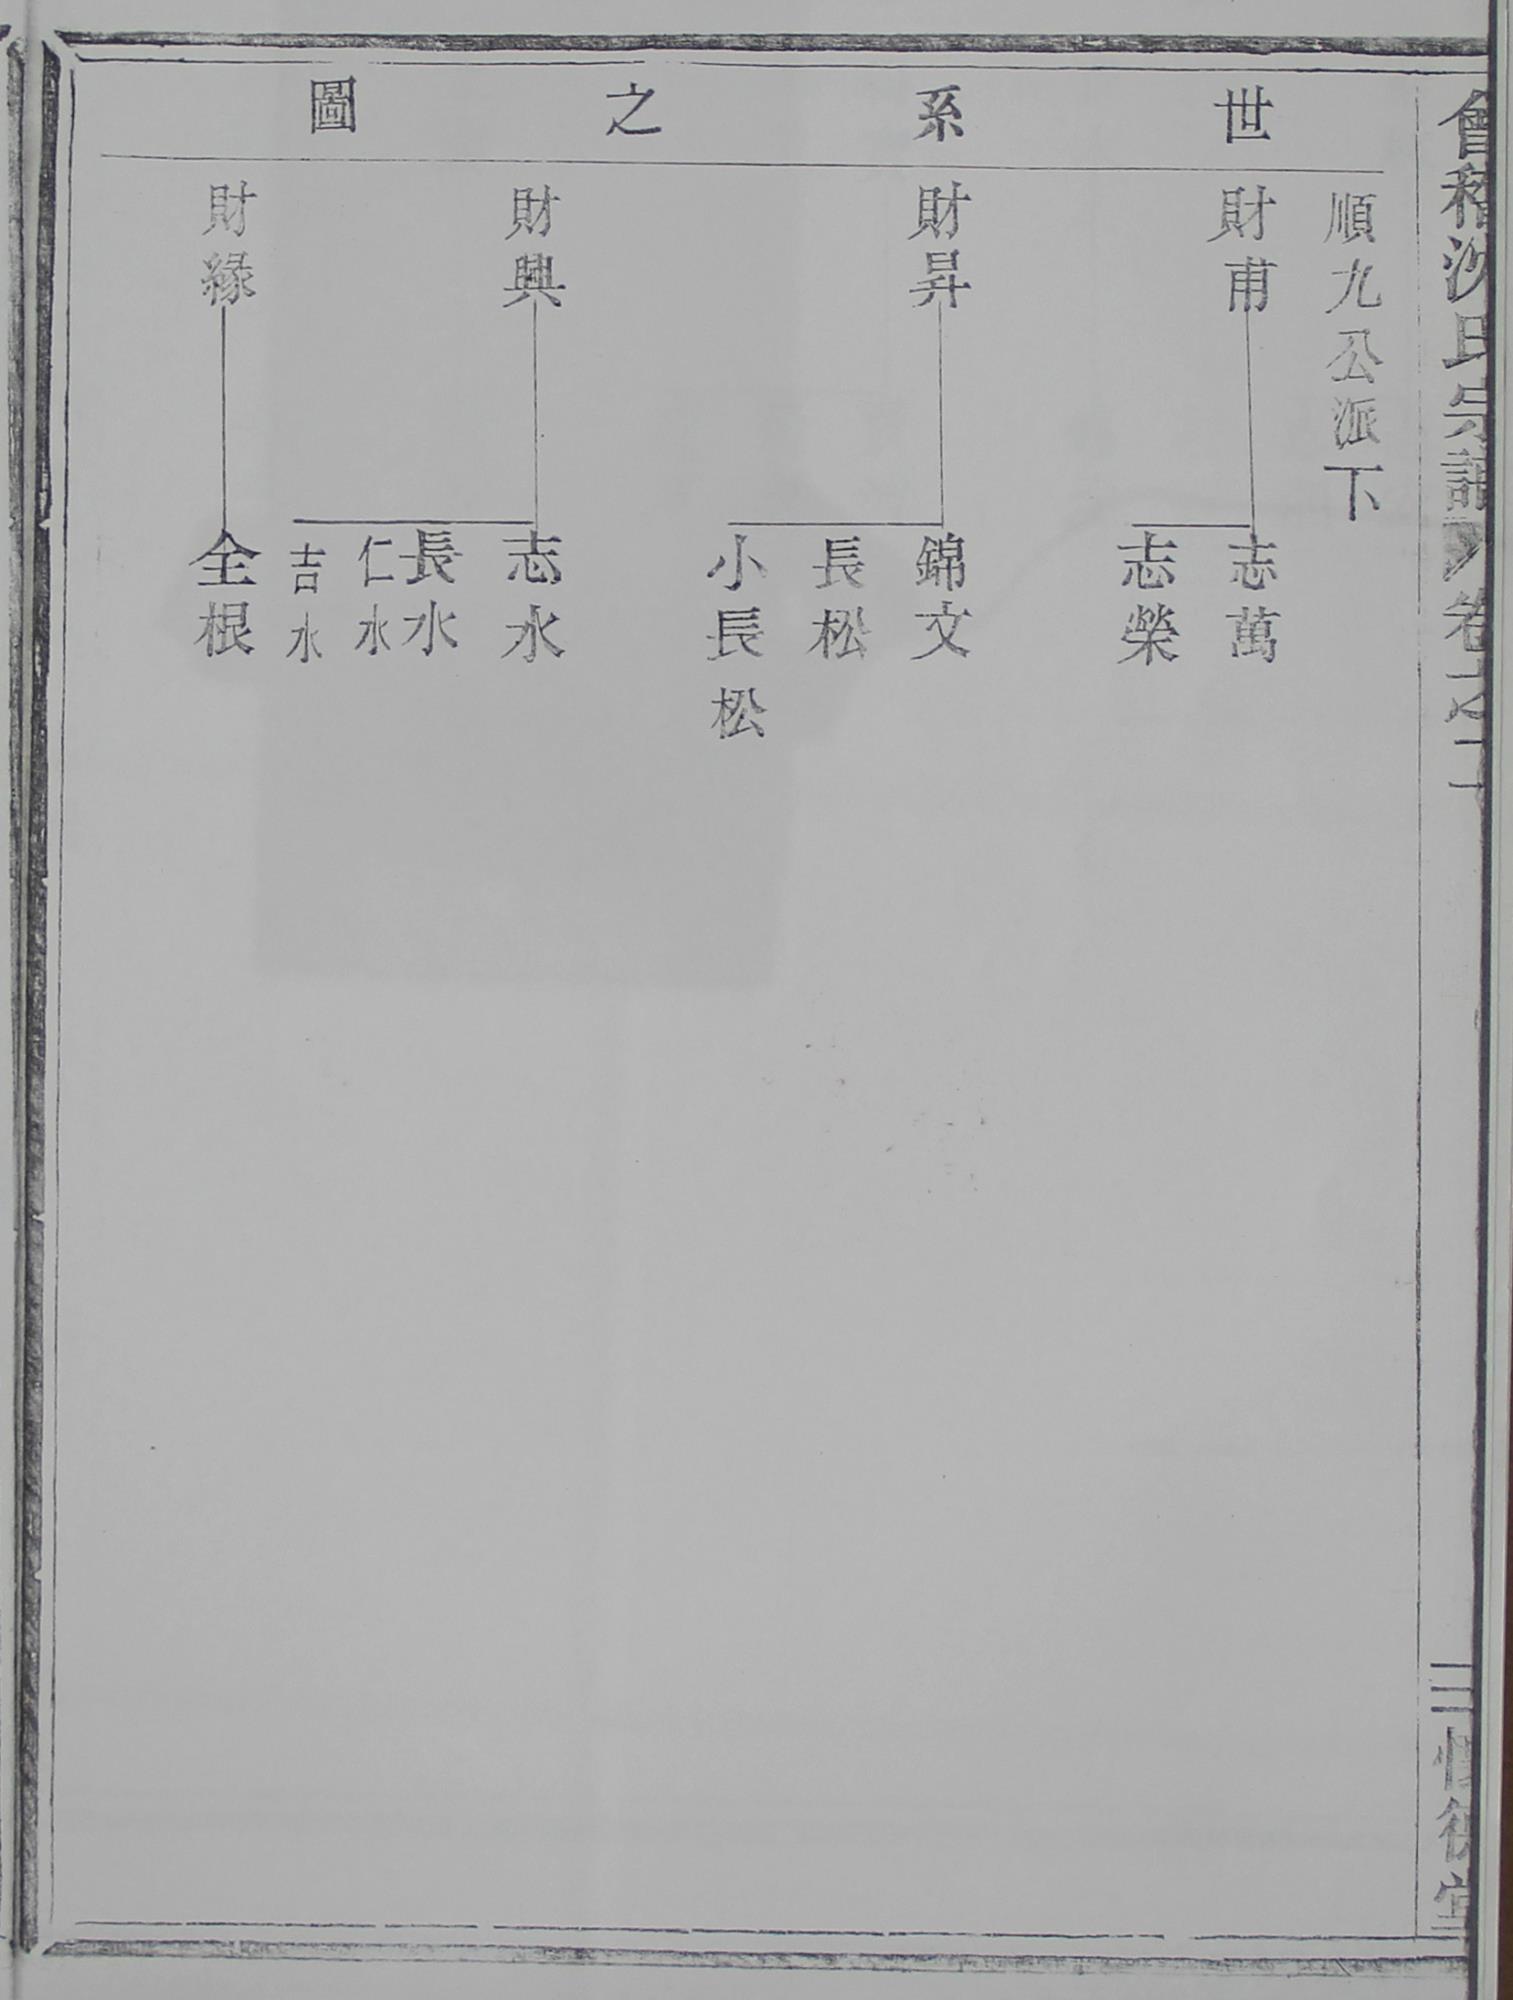 會稽沈氏宗譜 卷之十
三
懷德堂
世系之圖
順九公派下
財甫
志萬
志榮
財昇
錦文
長松
小長松
財興
志水
長水
仁水
吉水
財緣
全根